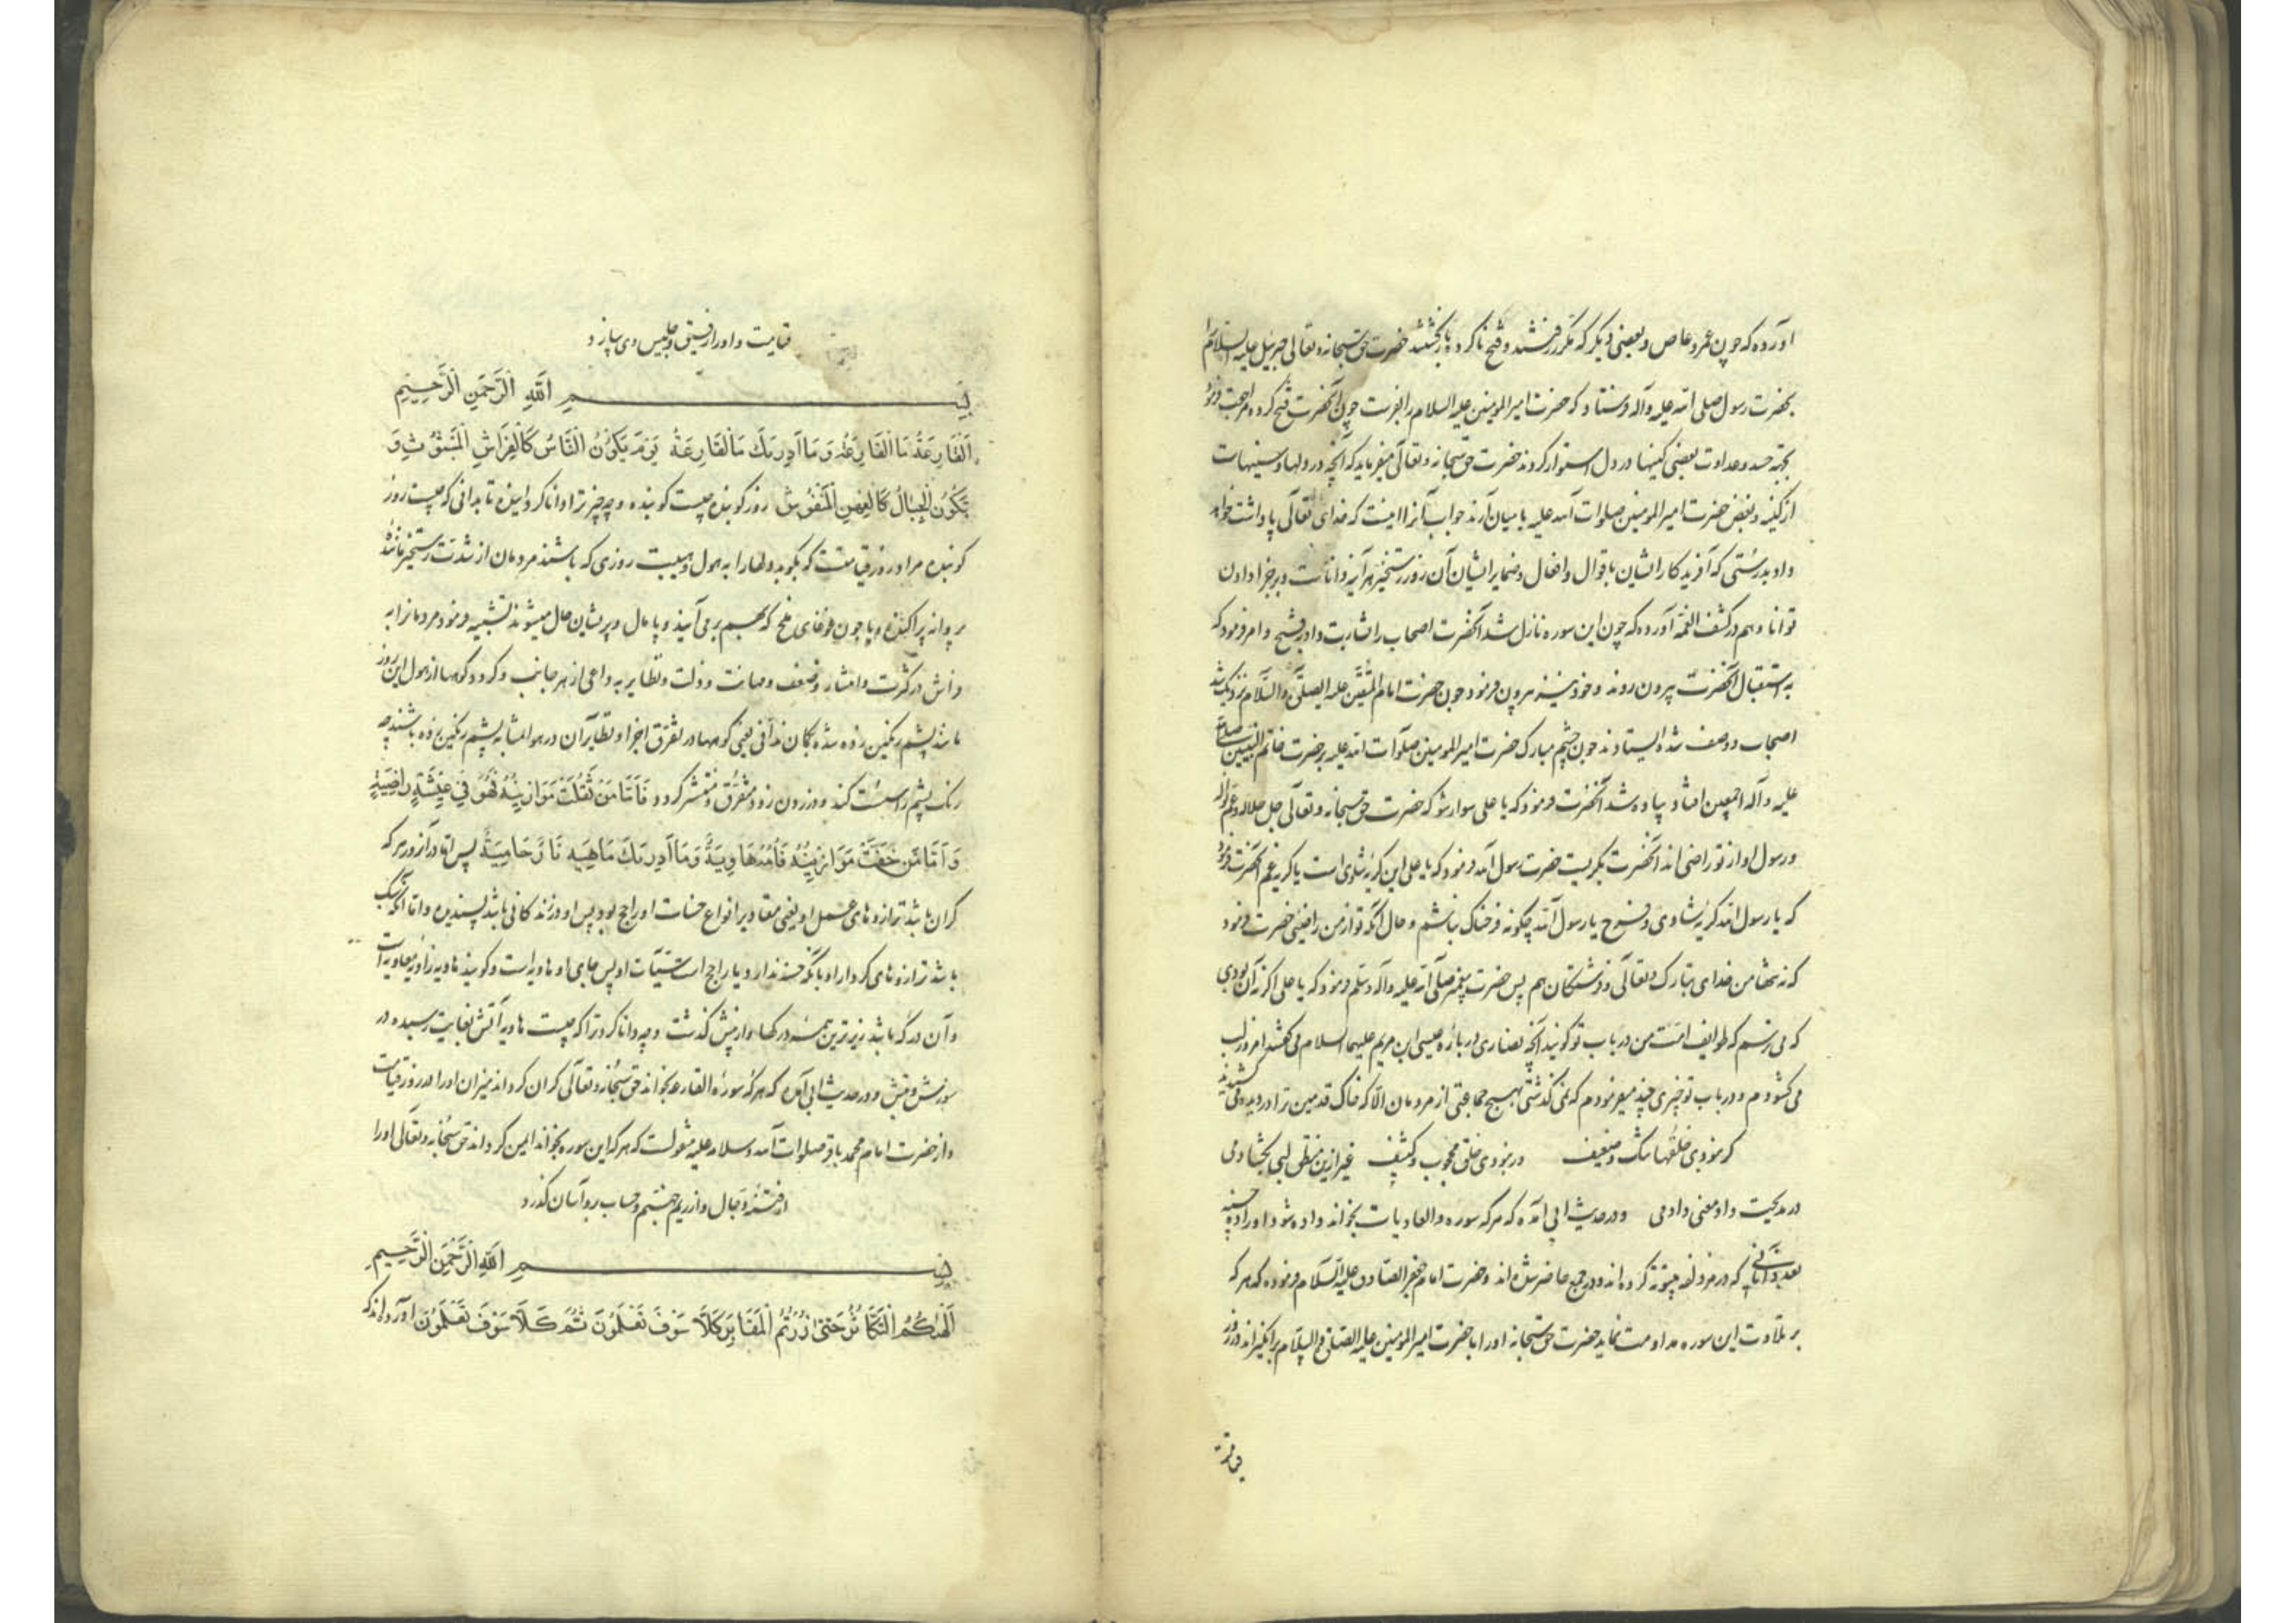 آورده که چون عمرو عاص و بعضی دیگر که مکرر رفتند و فتح ناکرده بازگشتند حضرت حق سبحانه و تعالی جبرئیل علیه السلام را
بحضرت رسول صلی الله علیه وآله فرستاد که حضرت امیر المومنین علیه السلام را بفرست چون آنحضرت فتح کرد و مراجعت فرمود
بجهة حسد و عداوت بعضی کینها در دل استوار کردند حضرت حق سبحانه و تعالی میفرماید که آنچه در دلها و سینهاست
از کینه و بغض حضرت امیر المومنین صلوات الله علیه با میان آرند جواب آنرا اینست که خدای تعالی پاداشت خواهد
داد بدرستی که آفریدکار ایشان باقوال و افعال و ضمایر ایشان آن روز رستخیز هر آینه داناست و بر جزا دادن
توانا و هم در کشف الغمه آورده که چون این سوره نازل شد آنحضرت اصحاب را بشارت داد بفتح و امر فرمود که
به استقبال آنحضرت بیرون روند و خود نیز بیرون فرمود چون حضرت امام المتقین علیه الصلوة والسلام نزدیک شد
اصحاب دو صف شده ایستادند چون چشم مبارک حضرت امیر المومنین صلوات الله علیه بر حضرت خاتم النبیین صلی الله
علیه وآله اجمعین افتاد پیاده شد آنحضرت فرمود که یا علی سوار شو که حضرت حق سبحانه و تعالی جل جلاله و عم نواله
و رسول او از تو راضی اند آنحضرت بگریست حضرت رسول الله فرمود که یا علی این گریه شادی است یا گریه غم آنحضرت فرمود
که یا رسول الله گریه شادی و فرح یا رسول الله چگونه فرحناک نباشم و حال آنکه تو از من راضیی حضرت فرمود
که نه تنها من خدای تبارک و تعالی و فرشتگان هم پس حضرت پیغمبر صلی الله علیه وآله وسلم فرمود که یا علی اگر نه آن بودی
که می ترسم که طوایف امت من در باب تو گویند آنچه نصاری در باره عیسی ابن مریم علیهما السلام می گفتند امروز لب
می گشودم و در باب تو چیزی چند میفرمودم که نمی گذشتی بهیچ جماعتی از مردمان الا که خاک قدمین ترا در دیده می کشیدند
گر نبودی خلقها تنگ و ضعیف ور نبودی خلق محجوب و کثیف غیر ازین منطق لبی بگشادمی
در مدیحت داد معنی دادمی و در حدیث ابی آمده که هر که سوره والعادیات بخواند داده شود او را ده حسنه
بعدد آنانی که در مزدلفه بیتوته کرده اند و در جمع حاضر شده اند و حضرت امام جعفر الصادق علیه السلام فرموده که هر که
بر تلاوت این سوره مداومت نماید حضرت حق سبحانه او را با حضرت امیر المومنین علیه الصلوة والسلام برانگیزاند در روز
قیامت
قیامت و او را از رفیق و جلیس وی سازد
بسم الله الرحمن الرحیم
اَلْقَارِعَةُ مَا الْقَارِعَةُ وَمَا اَدْرٰیكَ مَا الْقَارِعَةُ یَوْمَ یَكُوْنُ النَّاسُ كَالْفَرَاشِ الْمَبْثُوْثِ وَ
تَكُوْنُ الْجِبَالُ كَالْعِهْنِ الْمَنْفُوْشِ روز کوبنده چیست کوبنده و چه چیز ترا دانا کردانیده تا بدانی که چیست روز
کوبنده مراد روز قیامتست که بکوبد دلها را به هول و هیبت روزی که باشند مردمان از شدت رستخیز مانند
پروانه پراکنده و یا چون غوغای ملخ که بهم بر می آیند و پامال و پریشان حال میشوند تشبیه فرمود مردمانرا به
فراش در کثرت و انتشار و ضعف و مهانت و ذلت و تطایر به داعی از هر جانب و گردد کوهها از هول این روز
مانند پشم رنگین زده شده بکمان ندافی یعنی کوهها در تفرق اجزا و تطایر آن در هوا مشابه پشم رنگین زده باشند چه
رنگ پشم را سست کند و در زدن زود متفرق و منتشر گردد فَاَمَّا مَنْ ثَقُلَتْ مَوَازِیْنُهُ فَهُوَ فِیْ عِیْشَةٍ رَاضِیَةٍ
وَ اَمَّا مَنْ خَفَّتْ مَوَازِیْنُهُ فَاُمُّهُ هَاوِیَةٌ وَمَا اَدْرٰیكَ مَاهِیَهْ نَارٌ حَامِیَةٌ پس اما در آنروز هر که
گران باشد ترازوهای عمل او یعنی مقادیر انواع حسنات او راجح بود پس او در زندگانی باشد پسندیده و اما آنکه سبک
باشد ترازوهای کردار او بآنکه حسنه ندارد یا راجح است سیئات او پس جای او هاویه است و گویند هاویه زاویه معاویه است
و آن درکه باشد زیرترین همه درکها و از پیش گذشت و چه دانا کرد ترا که چیست هاویه آتش بغایت رسیده در
سوزش و تپش و در حدیث ابی آمده که هر که سوره القارعه بخواند حق سبحانه و تعالی گران گرداند میزان او را در روز قیامت
و از حضرت امام محمد باقر صلوات الله و سلامه علیه منقولست که هر که این سوره بخواند ایمن گرداند حق سبحانه و تعالی او را
از فتنه دجال و از ریم جهنم و حساب برو آسان گذرد
بسم الله الرحمن الرحیم
اَلْهٰیكُمُ التَّكَاثُرُ حَتّٰی زُرْتُمُ الْمَقَابِرَ كَلَّا سَوْفَ تَعْلَمُوْنَ ثُمَّ كَلَّا سَوْفَ تَعْلَمُوْنَ آورده اند که